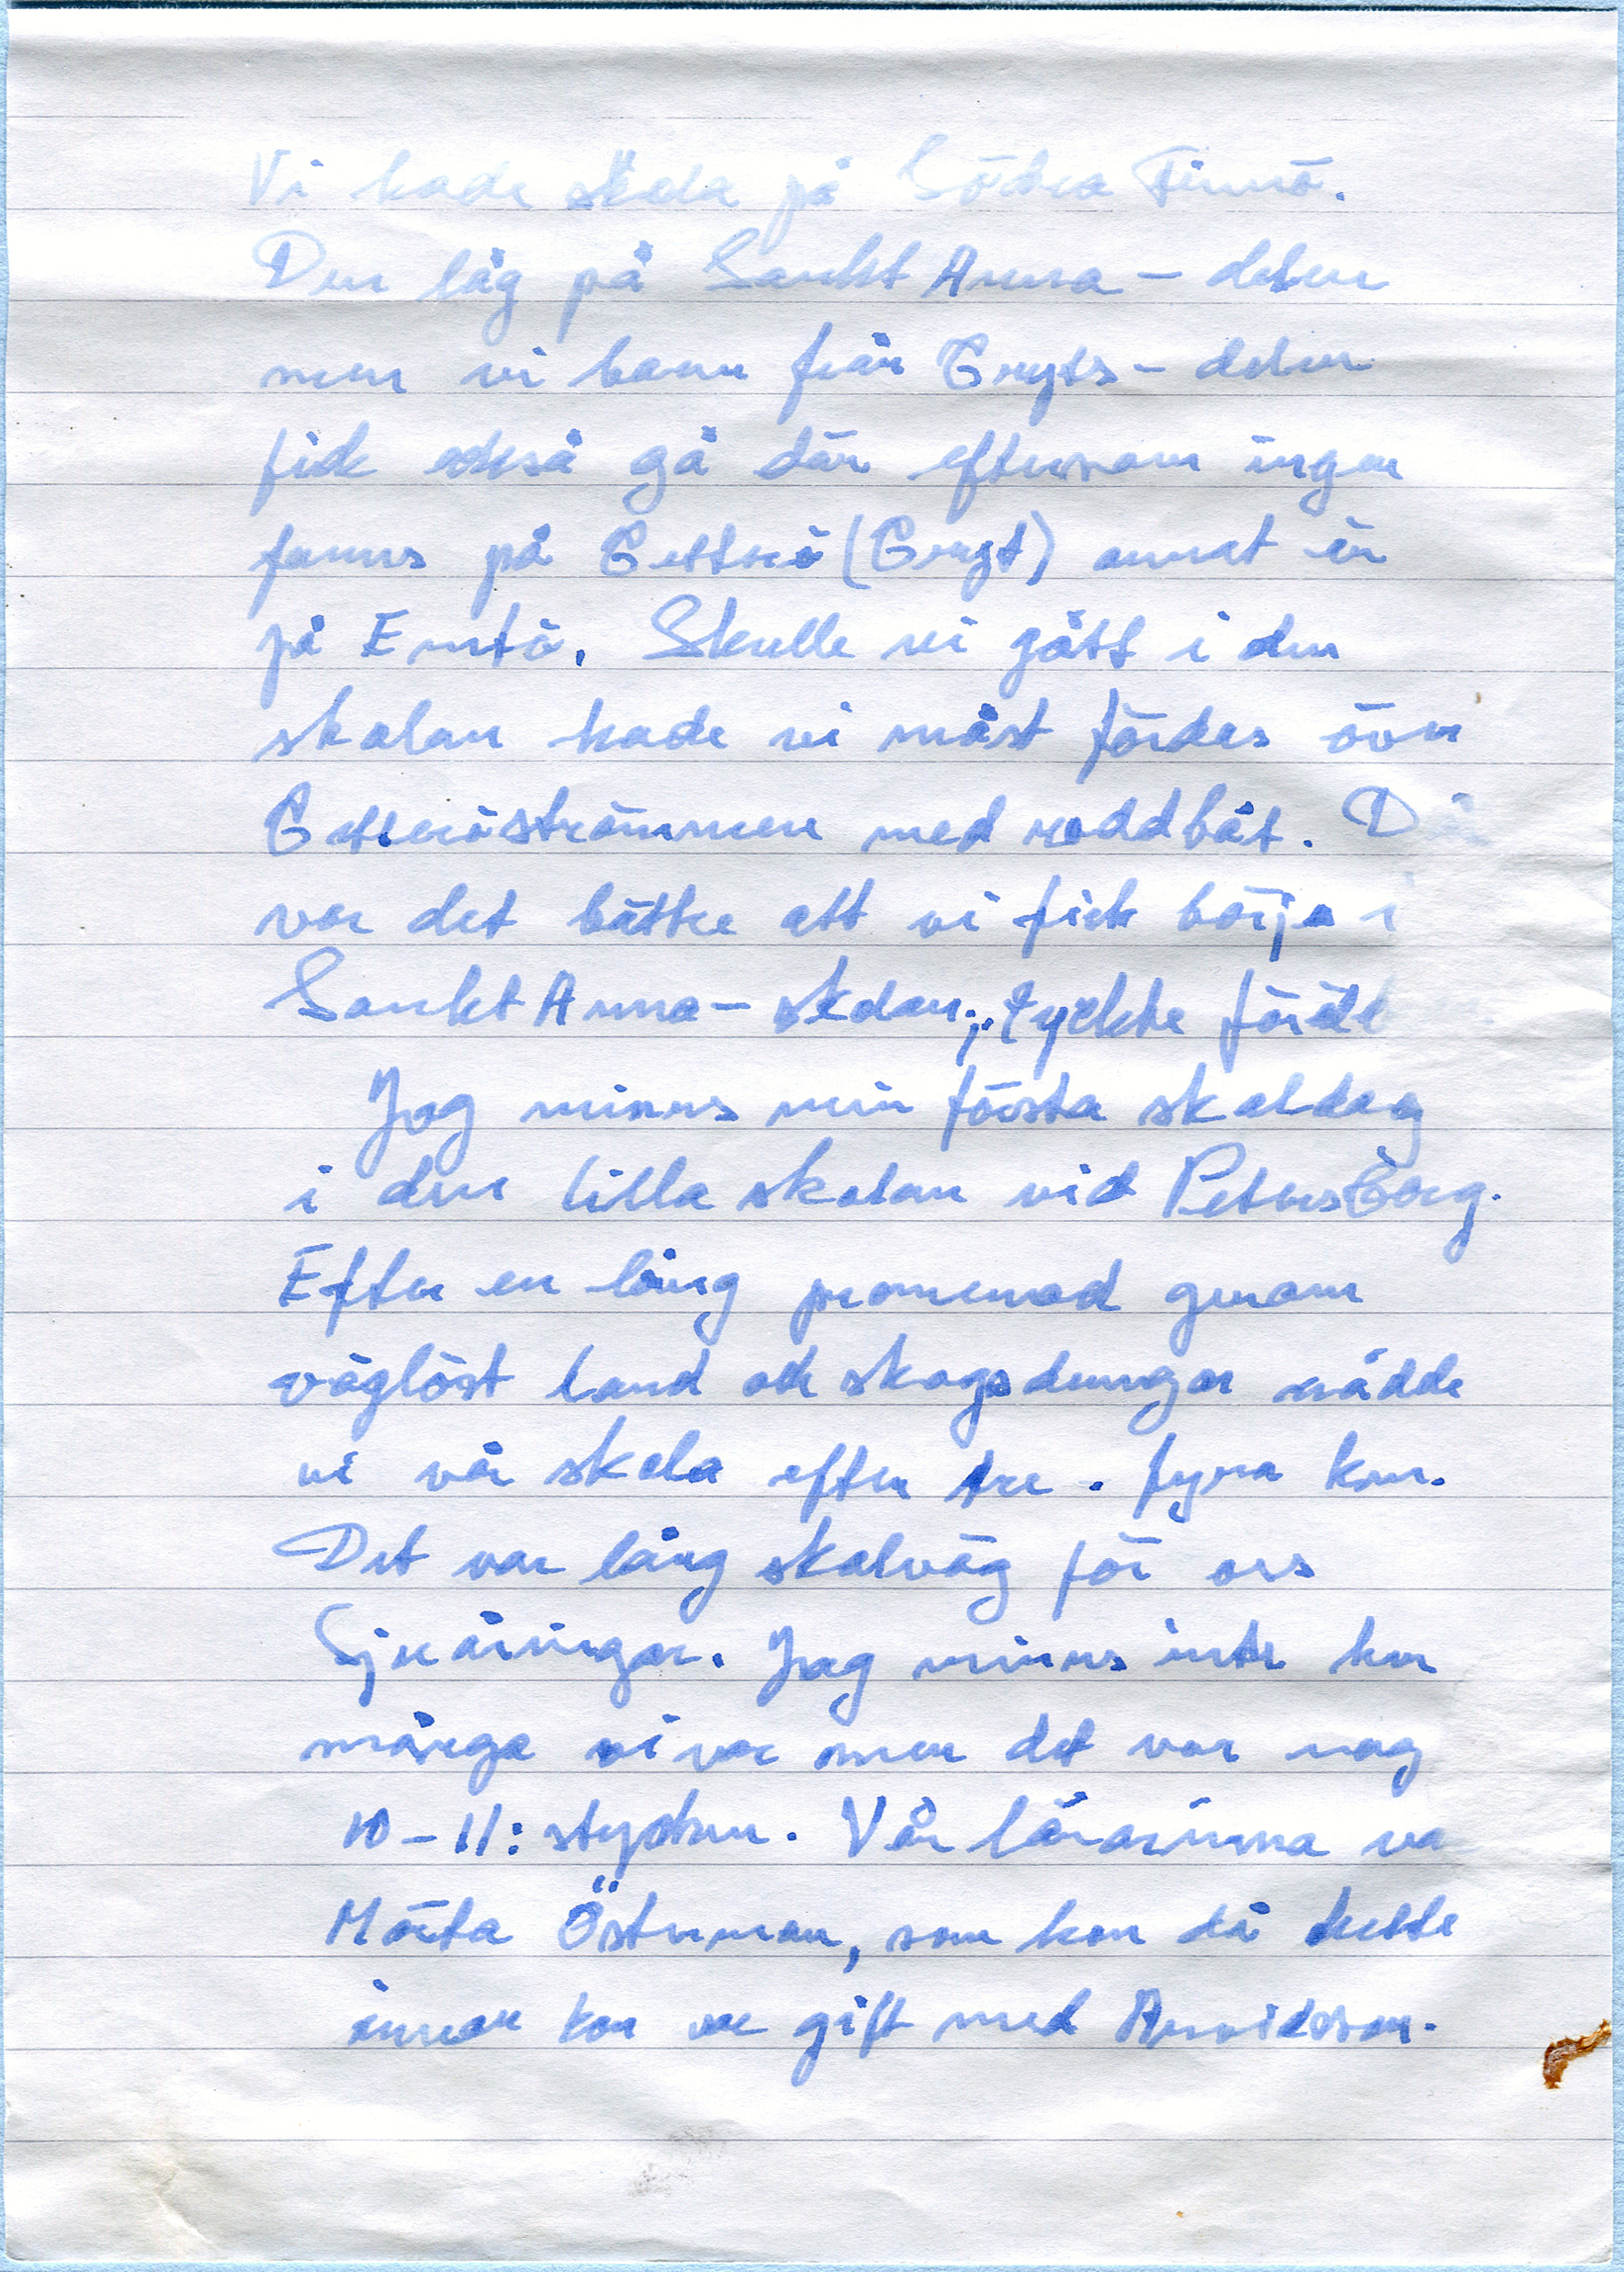 Vi hade skola på Södra Finnö.
Den låg på Sankt Anna - delen
men vi barn från Gryts - delen
fick också gå där eftersom ingen
fanns på Gettnö (Gryt) annat än
på Entö. Skulle vi gått i den
skolan hade vi måst färdas över
Gettnöströmmen med roddbåt. Då
var det bättre att vi fick börja i
Sankt Anna - skolan, tyckte föräl
Jag minns min första skoldag
i den lilla skolan vid Petersborg.
Efter en lång promenad genom
väglöst land och skogsdungar nådde
vi vår skola efter tre - fyra km.
Det var lång skolväg för oss
Sjuåringar. Jag minns inte hur
många vi var men det var nog
10 - 11: stycken. Vår lärarinna va
Märta Österman, som hon då hette
innan hon var gift med Arvidsson.